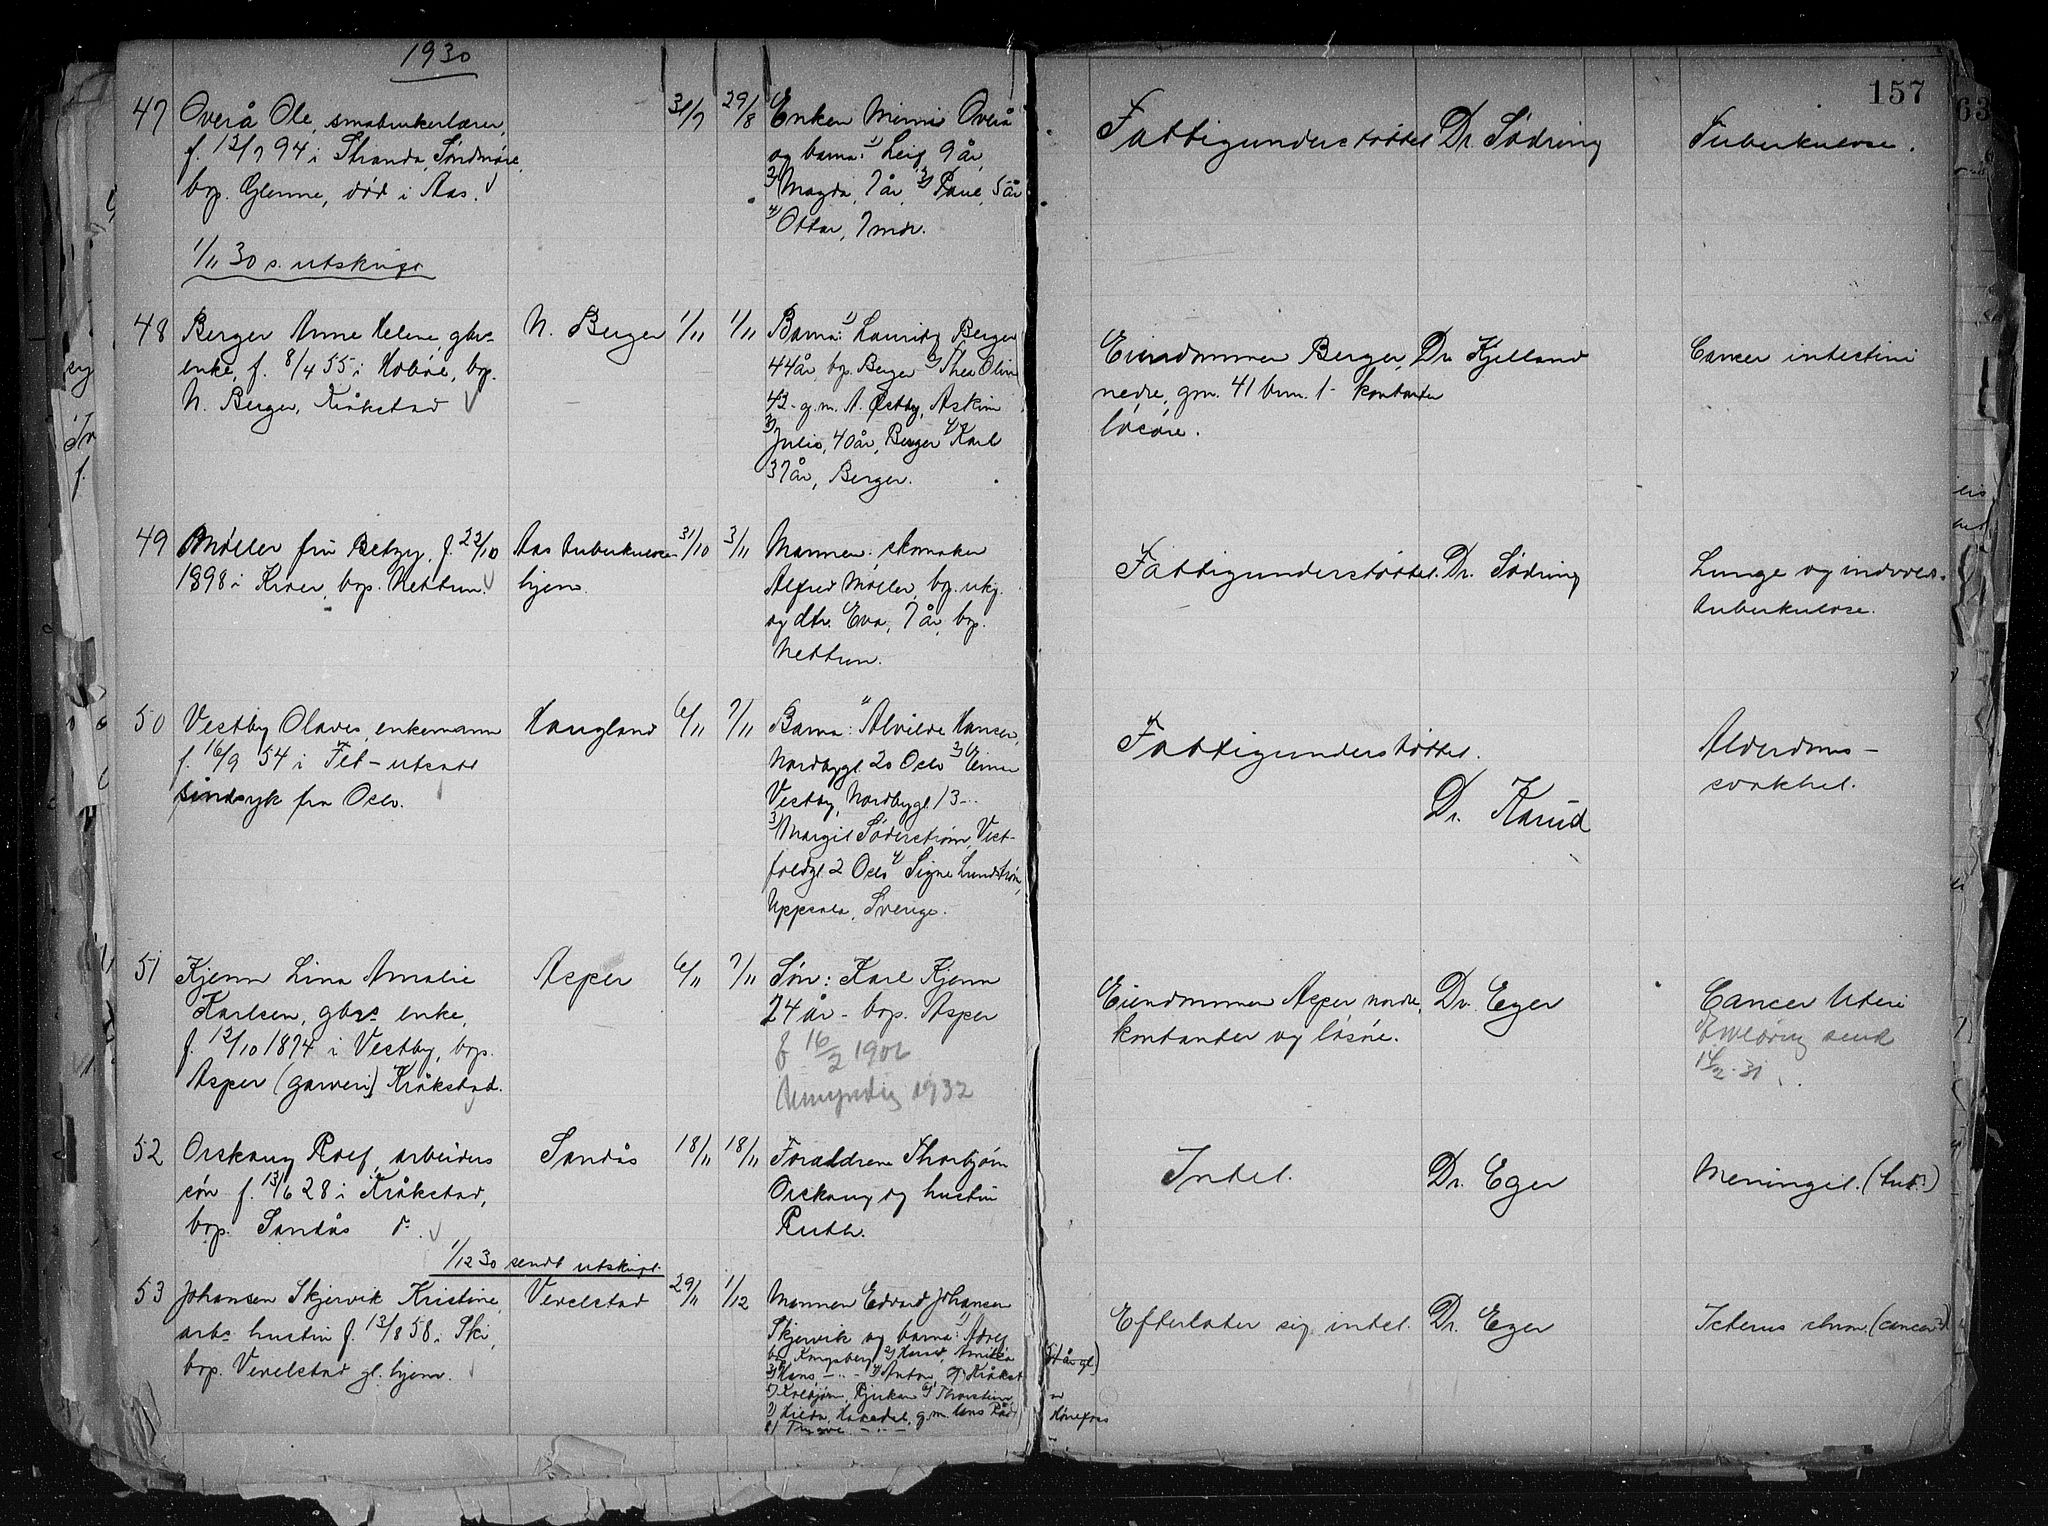 1930
157
47 Overå Ole, småbrukerlærer, 31/7 29/8 Enken Mimi Overå Fattigunderstøttet Dr. Sødring Tuberkulose.
f. 12/7 94 i Stranda, Søndmøre, og barna: 1) Leif 9 år,
bop. Glenne, død i Aas. 2) Magda, 7 år, 3) Paul, 5 år
4) Ottar, 7 mdr.
1/11 30 s. utskrift
48 Berger Anne Helene, gbr- N. Berger 1/11 1/11 Barna: 1) Berger Eiendommen Berger, Dr. Kjelland Cancer intestini
enke, f. 8/4 55 i Hobøl, bop. 44 år, bop. Berger 2) Thea Oline nedre, gnr. 41 brn. 1 - kontanter
N. Berger, Kråkstad 42 - g. m. A. Østby, Askim løsøre.
3) Julie, 40 år, Berger 4) Karl
37 år, Berger.
49 Møller fru Betzy, f. 23/10 Aas tuberkulose- 31/10 3/11 Mannen: skomaker Fattigunderstøttet. Dr. Sødring Lunge og indvolds-
1898 i Kroer, bop. Nettum. hjem. Alfred Møller, bop. ukj. tuberkulose.
og dtr. Eva, 7 år, bop.
Nettum.
50 Vestby Olaves, enkemann Haugland 6/11 7/11 Barna: 1) Alvilde Hansen, Fattigunderstøttet. Alderdoms-
f. 16/9 54 i Fet - utsatt Nordbygt 20 Oslo 2) Einar svakhet.
sindsyk fra Oslo. Vestby, Nordbygt 13 - Dr. Karud
3) Margit Söderstrøm, Vest-
foldgt 2 Oslo 4) Signe Lundstrøm,
Uppsala, Sverige.
51 Kjenn Lina Amalie Asper 6/11 7/11 Søn: Karl Kjenn Eiendommen Asper nordre, Dr. Eger Cancer Uteri
Karlsen, gbrs enke, 24 år - bop. Asper kontanter og løsøre.
f. 12/10 1874 i Vestby, bop. f 16/2 1906 send
Asper (garveri) Kråkstad. Umyndig 1932 14/2 - 31
52 Orskaug Rolf, arbeiders Sandås 18/11 18/11 Foreldrene Thorbjørn Intet. Dr. Eger Meningit. (tub.)
søn f. 13/6 28 i Kråkstad, Orskaug og hustru
bop. Sandås Ruth.
1/12 30 sendt utskrift
53 Johansen Skjervik Kristine, Verelstad 29/11 1/12 Mannen Edvard Johansen Efterlater sig intet. Dr. Eger Icterus chron. (cancer)
arbs hustru f. 13/8 58 i Ski, Skjervik og barna: 1) Adolf
bop. Verelstad gl. hjem. bop. Kongsberg,
3) Hans - 4) Anton Kråkst
5) Kolbjørn, Rjukan 6) Thorstein, Hønefoss
7) Hilda, g. m.
8) Trygve